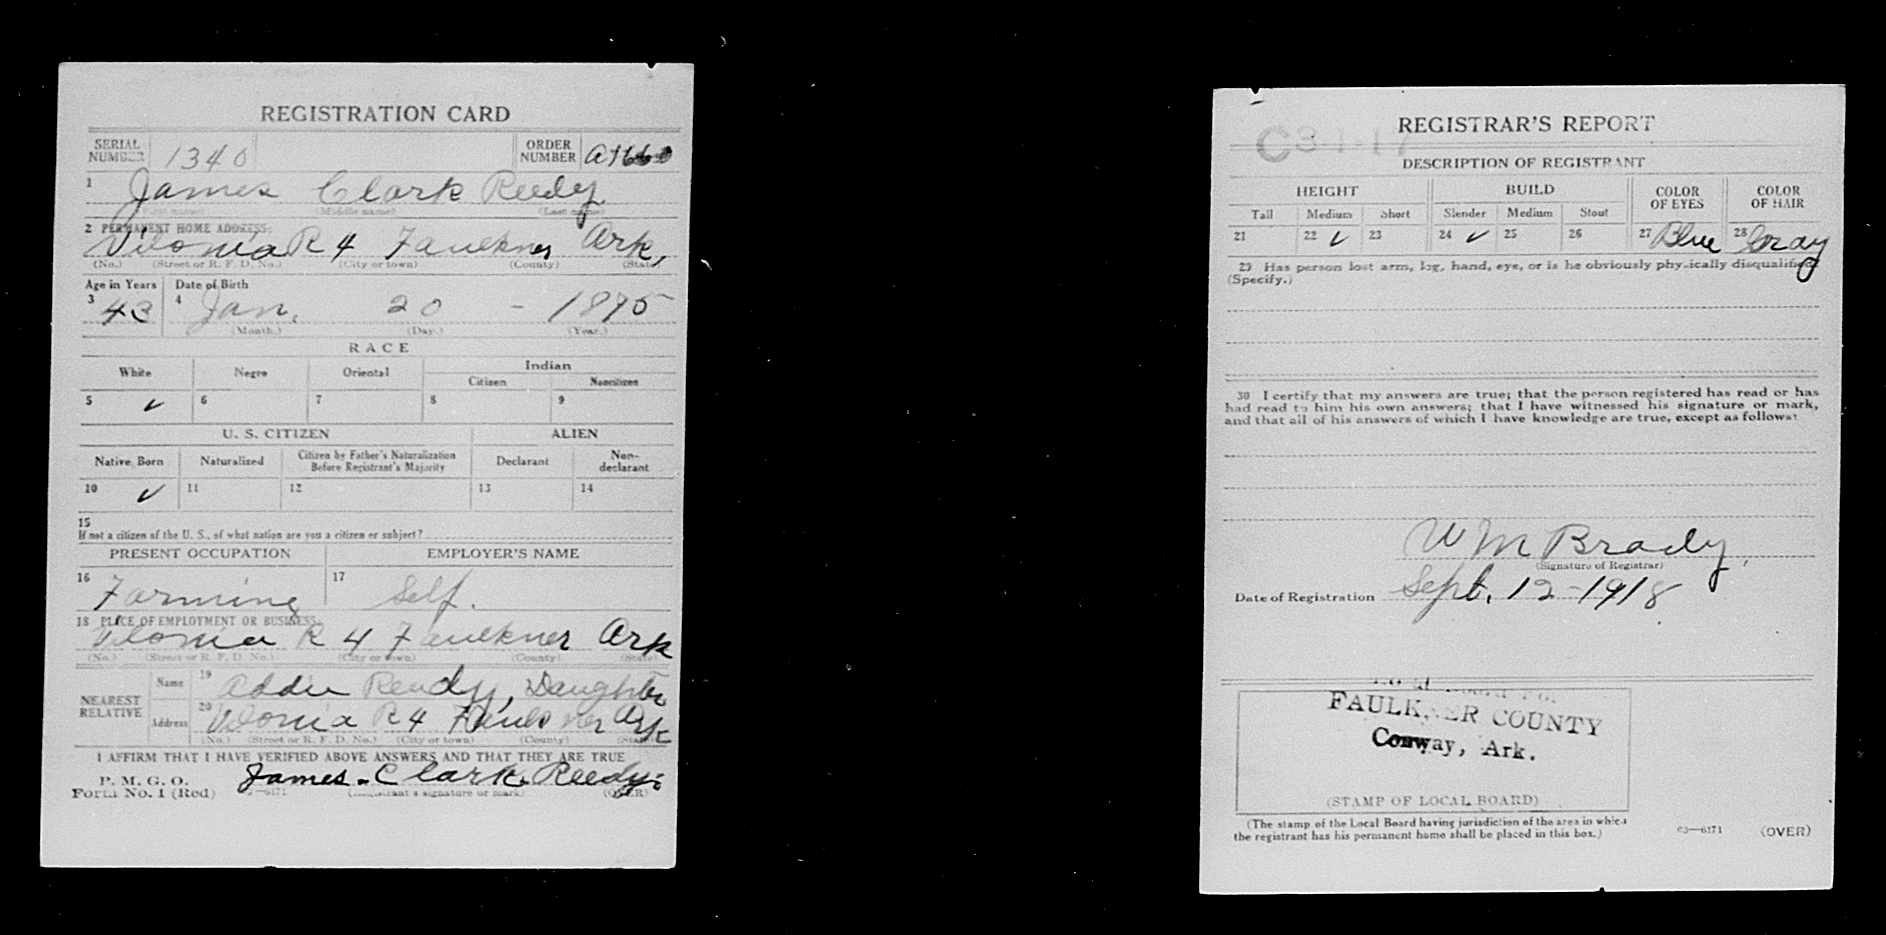 REGISTRATION CARD
SERIAL NUMBER 1340 ORDER NUMBER A1660
1 James Clark Reedy
(First name) (Middle name) (Last name)
2 PERMANENT HOME ADDRESS:
Vilonia R 4 Faulkner Ark,
(No.) (Street or R. F. D. No.) (City or town) (County) (State)
Age in Years Date of Birth
3 43 4 Jan. 20 - 1875
(Month.) (Day.) (Year.)
RACE
White Negro Oriental Indian
Citizen Noncitizen
5 ✓ 6 7 8 9
U. S. CITIZEN ALIEN
Native Born Naturalized Citizen by Father's Naturalization Before Registrant's Majority Declarant Non-declarant
10 ✓ 11 12 13 14
15
If not a citizen of the U. S., of what nation are you a citizen or subject?
PRESENT OCCUPATION EMPLOYER'S NAME
16 Farming 17 Self.
18 PLACE OF EMPLOYMENT OR BUSINESS:
Vilonia R 4 Faulkner Ark
(No.) (Street or R. F. D. No.) (City or town) (County) (State)
NEAREST RELATIVE Name 19 Addie Reedy, Daughter
Address 20 Vilonia R 4 Faulkner Ark
(No.) (Street or R. F. D. No.) (City or town) (County) (State)
I AFFIRM THAT I HAVE VERIFIED ABOVE ANSWERS AND THAT THEY ARE TRUE
P. M. G. O.
Form No. 1 (Red) 03—6171 James Clark Reedy
(Registrant's signature or mark) (OVER)
C3-1-17
REGISTRAR'S REPORT
DESCRIPTION OF REGISTRANT
HEIGHT BUILD COLOR OF EYES COLOR OF HAIR
Tall Medium Short Slender Medium Stout
21 22 ✓ 23 24 ✓ 25 26 27 Blue 28 Gray
29 Has person lost arm, leg, hand, eye, or is he obviously physically disqualified?
(Specify.)
30 I certify that my answers are true; that the person registered has read or has
had read to him his own answers; that I have witnessed his signature or mark,
and that all of his answers of which I have knowledge are true, except as follows:
W M Brady
(Signature of Registrar)
Date of Registration Sept. 12-1918
FAULKNER COUNTY
Conway, Ark.
(STAMP OF LOCAL BOARD)
(The stamp of the Local Board having jurisdiction of the area in which
the registrant has his permanent home shall be placed in this box.)
03—6171 (OVER)